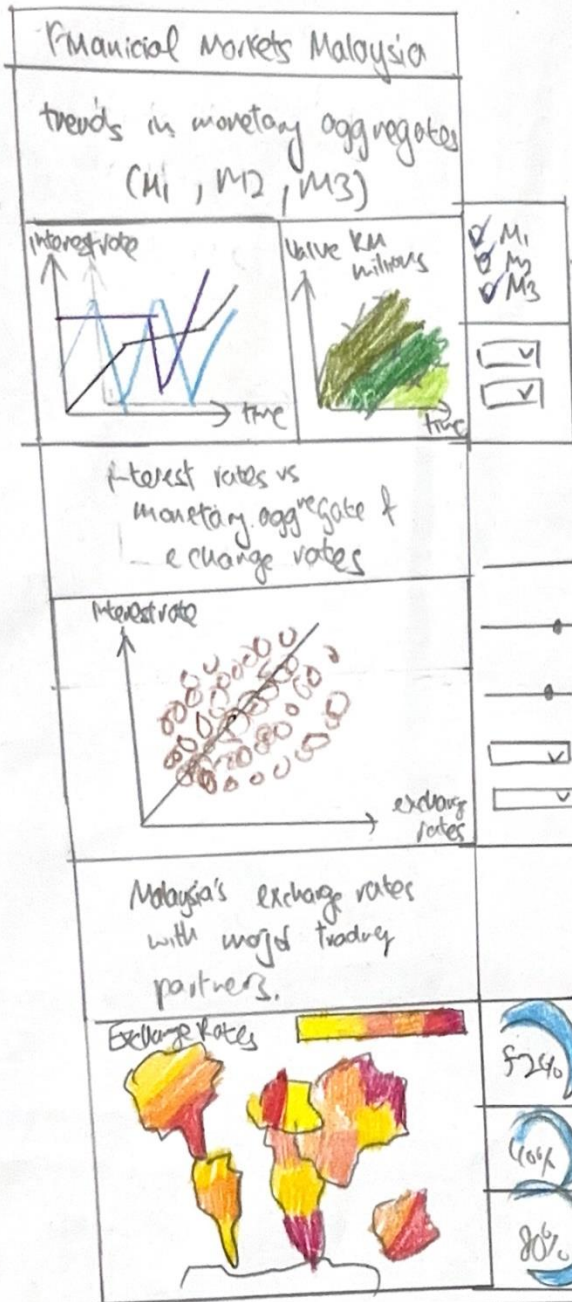 Fmanicial Markets Malaysia
trends in monetary aggregates
(M1, M2, M3)
interest rate
time
Value RM
millions
time
M1
M2
M3
interest rates vs
monetary aggregate &
exchange rates
Interest rate
exchang
rates
Malaysia's exchange rates
with major trading
partners.
Exchange Rates
40%
80%